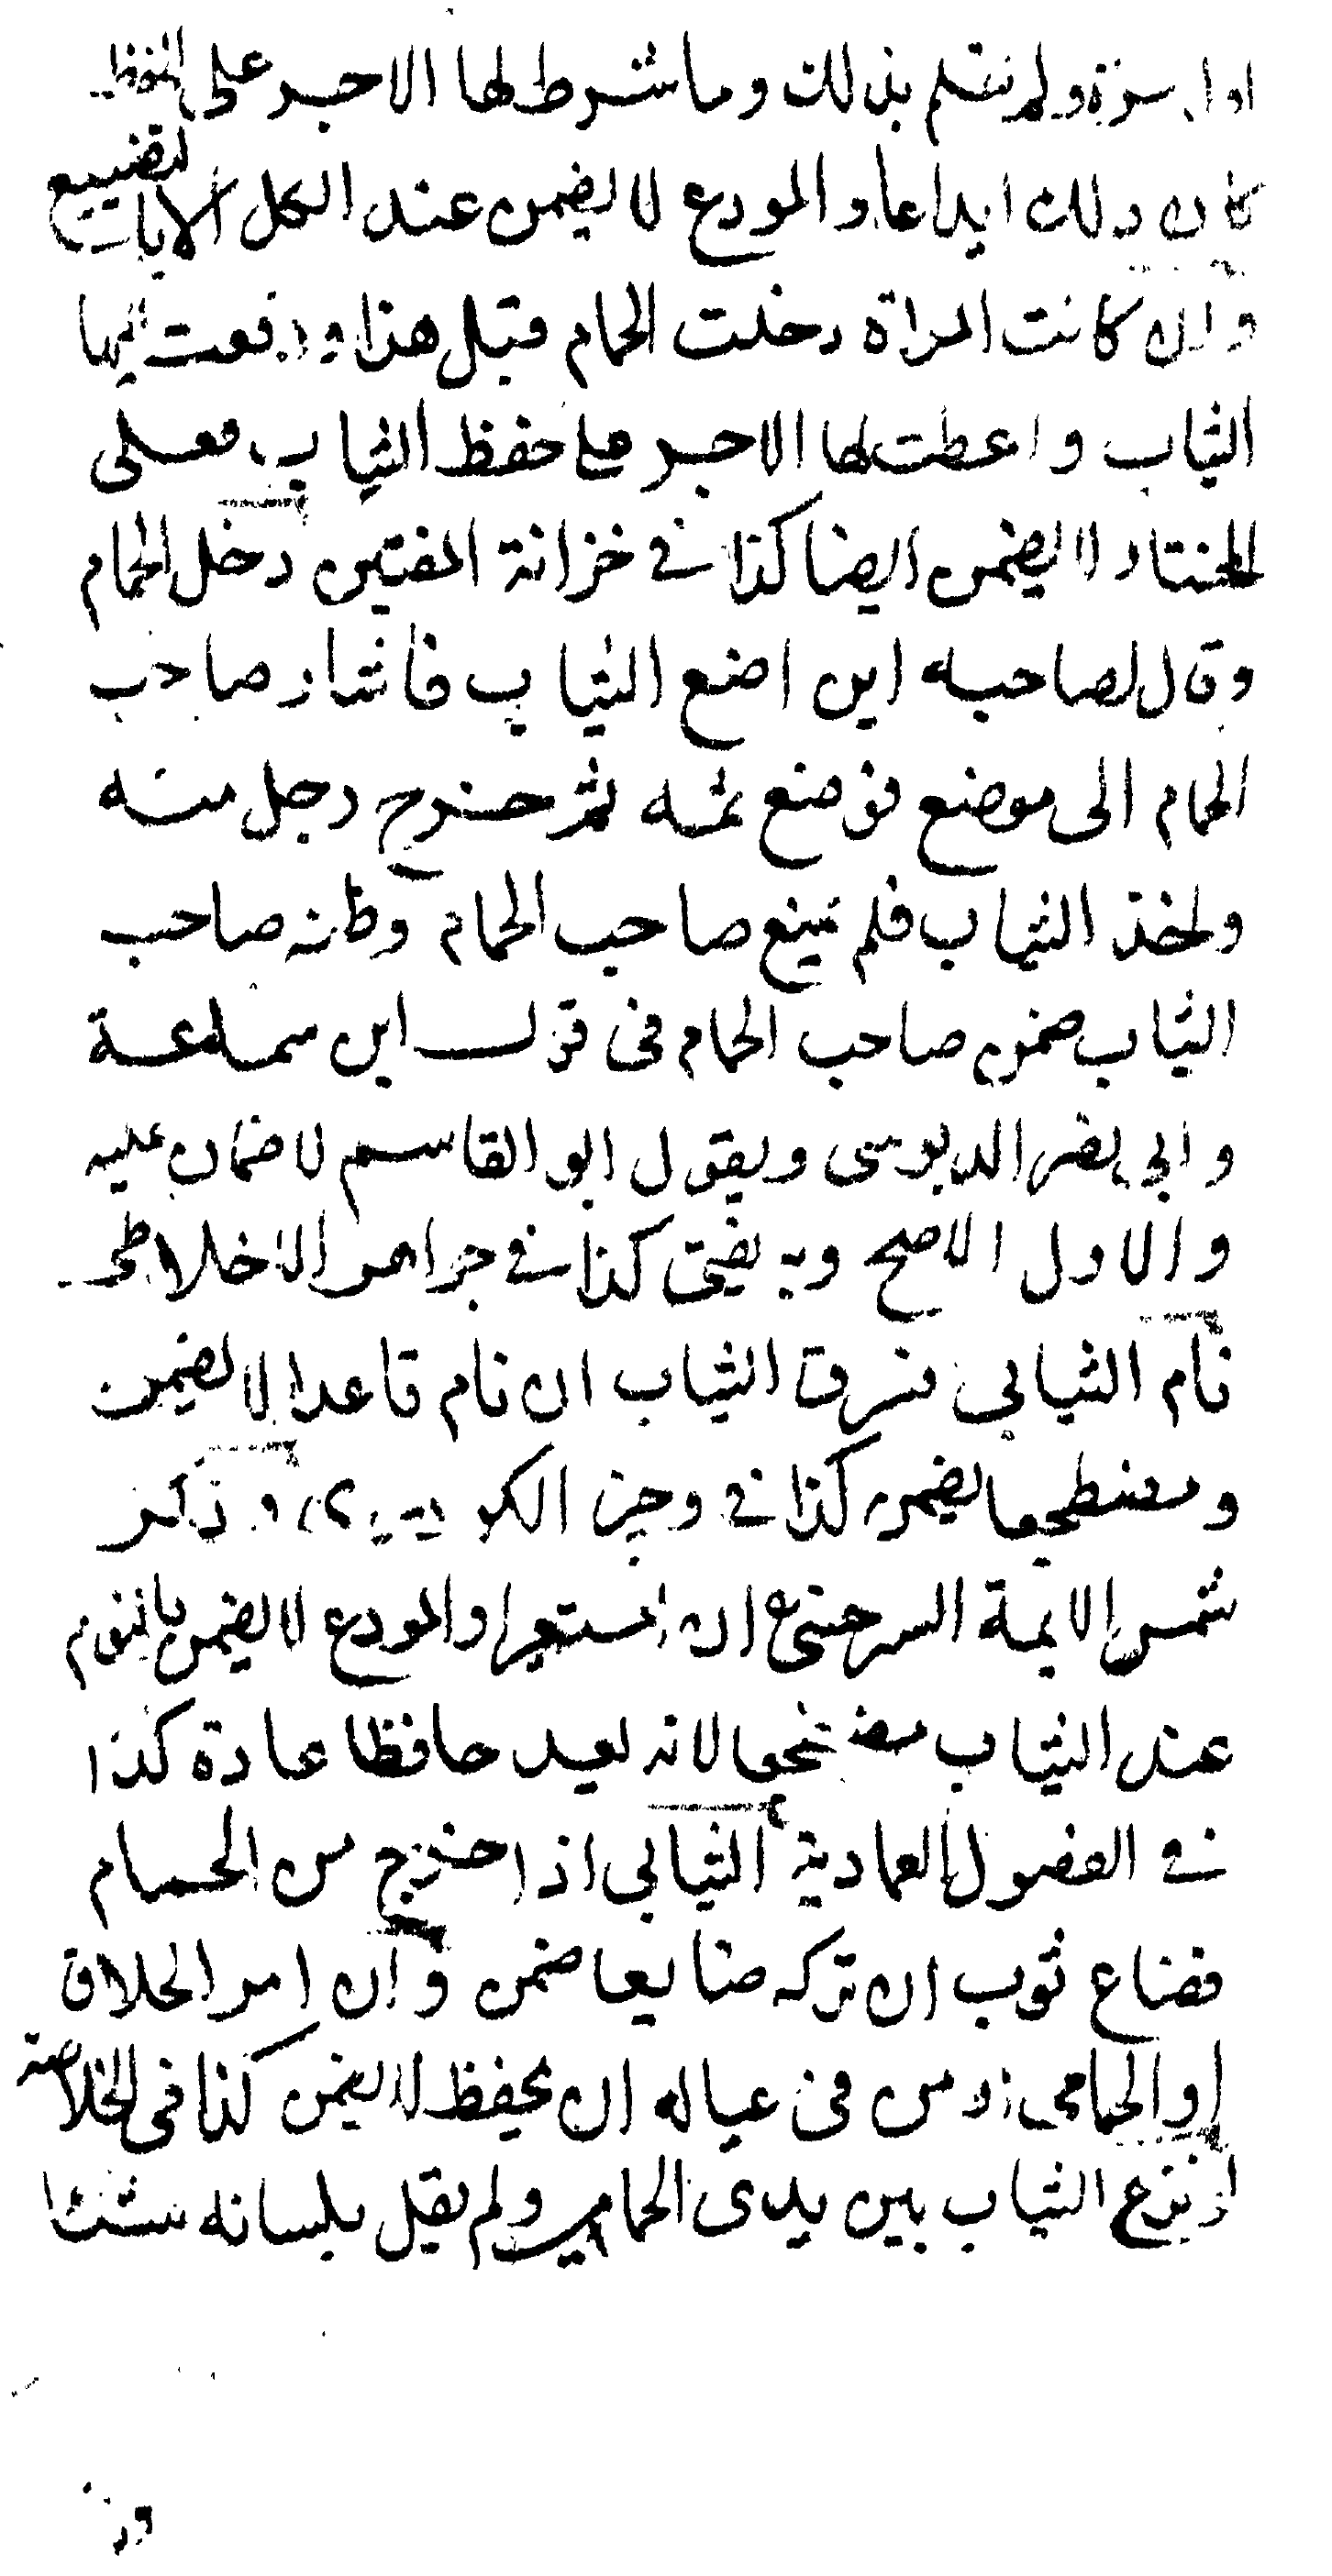 اول مرة ولم تعلم بذلك وما شرط لها الاجر على الحفظ
كان ذلك ايداعا والمودع لا يضمن عند الكل الا بالتضييع
وان كانت المراة دخلت الحمام قبل هذا ودفعت اليها
الثياب واعطت لها الاجر على حفظ الثياب فعلى
المختار لا يضمن ايضا كذا في خزانة المفتين دخل الحمام
وقال لصاحبه اين اضع الثياب فاشار صاحب
الحمام الى موضع فوضع ثمه ثم خرج رجل منه
واخذ الثياب فلم يمنع صاحب الحمام وظنه صاحب
الثياب ضمن صاحب الحمام في قول ابن سماعة
وابي نصر الدبوسى ويقول ابو القاسم لا ضمان عليه
والاول الاصح وبه يفتى كذا في جواهر الاخلاطى
نام الثيابي فسرق الثياب ان نام قاعدا لا يضمن
ومضطجعا يضمن كذا في وجيز الكردري وذكر
شمس الايمة السرخسى ان المستعير والمودع لا يضمن بالنوم
عند الثياب مضطجعا لانه يعد حافظا عادة كذا
في الفصول العمادية الثيابي اذا خرج من الحمام
فضاع ثوب ان تركه ضايعا ضمن وان امر الحلاق
او الحمامي او من في عياله ان يحفظ لا يضمن كذا في الخلاصة
اذ نزع الثياب بين يدى الحمامي ولم يقل بلسانه شيئا